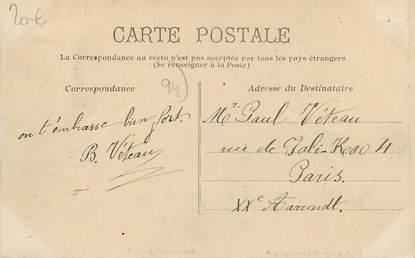 20€
CARTE POSTALE
La Correspondance au recto n'est pas acceptée par tous les pays étrangers
(Se renseigner à la Poste)
Correspondance
94
on t'embrasse bien fort.
B. Véteau
Adresse du Destinataire
Mr. Paul Véteau
rue de Pali-Kao 4
Paris.
XXe Arrondt.